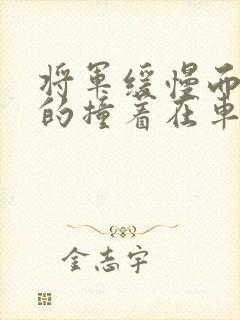 将军缓慢而
的撞着在车
金志宇